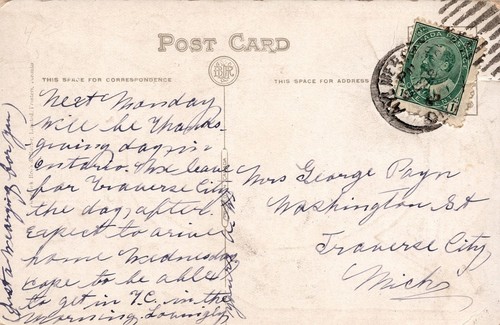 POST CARD
THIS SPACE FOR CORRESPONDENCE
THIS SPACE FOR ADDRESS
CANADA POSTAGE
Next Monday
will be Thanks-
giving day in
Ontario. We leave
for Traverse City
the day after.
Expect to arive
home Wednesday
hope to be able
to get in T.C. in the
morning. Lovingly
yours
Just a wearying for you
Mrs George Payn
Washington St
Traverse City
Mich